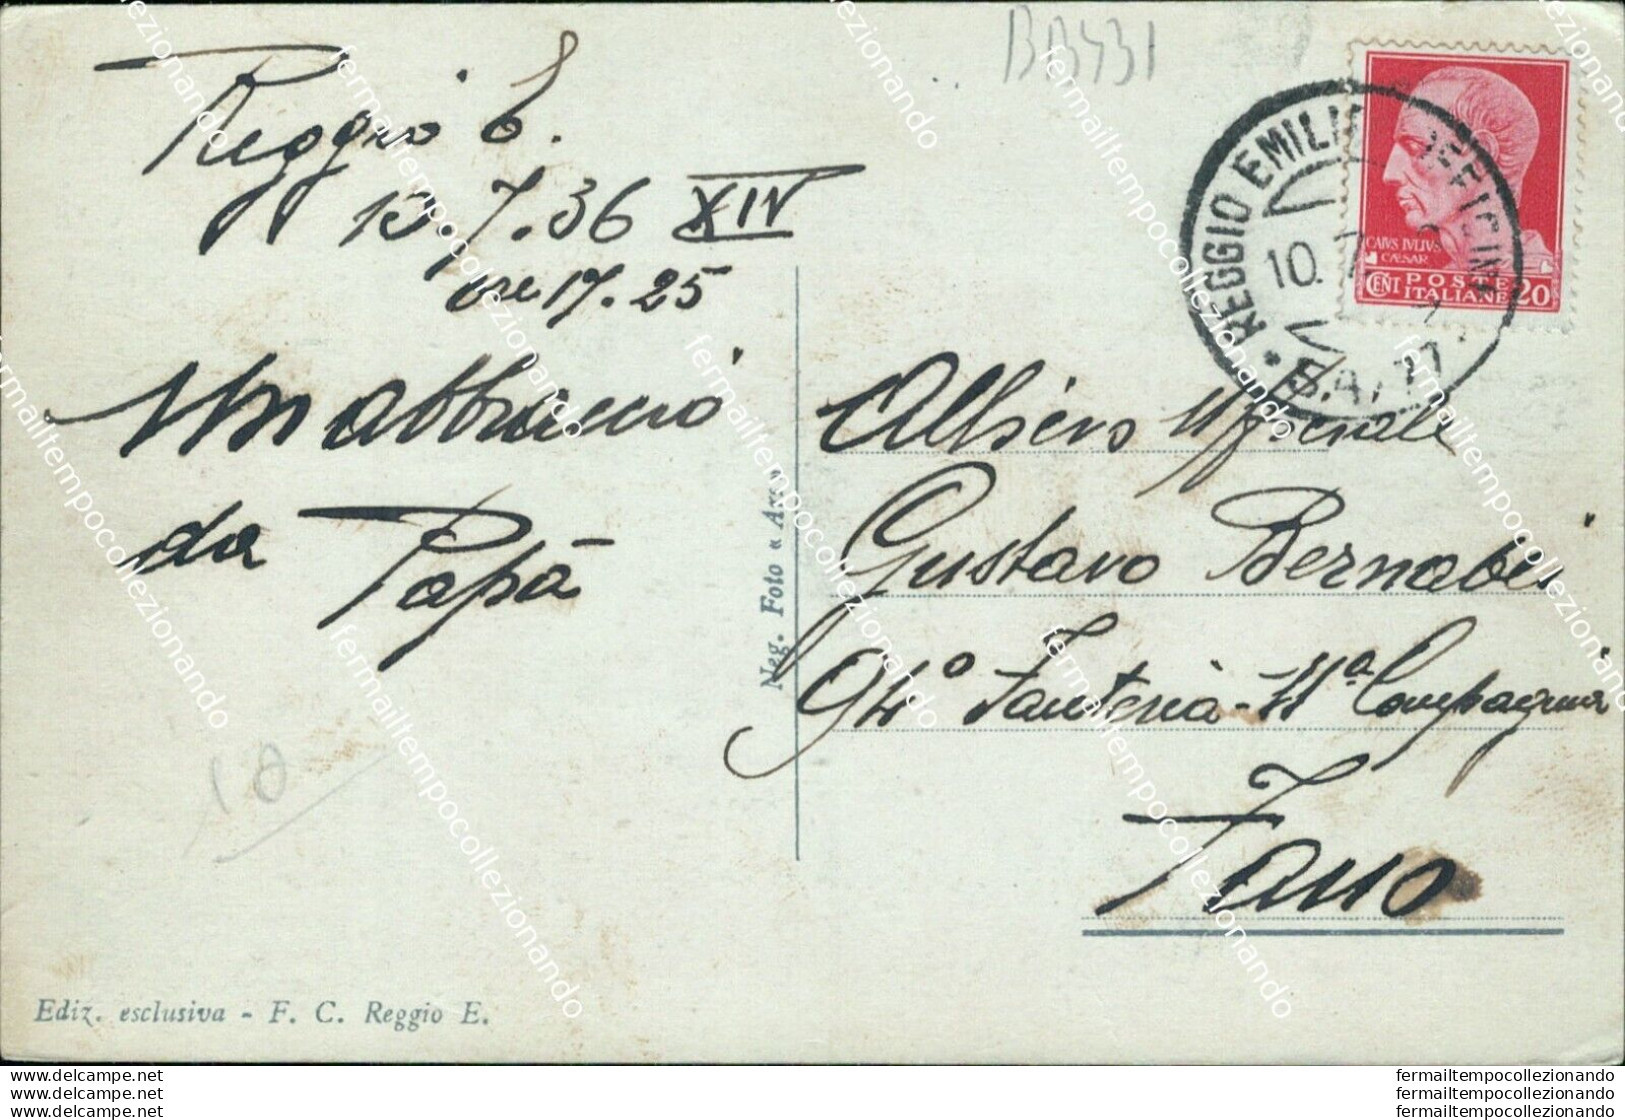 BB431
Reggio E.
10.7.36 XIV
ore 17.25
Un abbraccio
da Papà
10
Ediz. esclusiva - F. C. Reggio E.
Neg. Foto «
REGGIO EMILIA
10. 7.
CAIVS IVLIVS
CAESAR
CENT POSTE 20
ITALIANE
Allievo Ufficiale
Gustavo Bernabei
94° Fanteria - 11ª Compagnia
Fano
fermailtempocollezionando
www.delcampe.net
www.delcampe.net
www.delcampe.net
fermailtempocollezionando
fermailtempocollezionando
fermailtempocollezionando